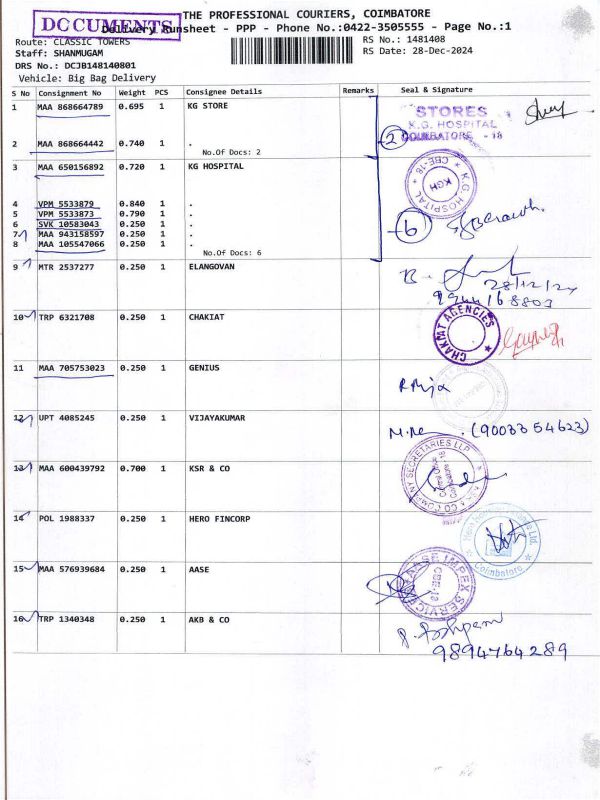 DOCUMENTS
THE PROFESSIONAL COURIERS, COIMBATORE
Delivery Runsheet - PPP - Phone No.:0422-3505555 - Page No.:1
Route: CLASSIC TOWERS
RS No.: 1481408
Staff: SHANMUGAM
RS Date: 28-Dec-2024
DRS No.: DCJB148140801
Vehicle: Big Bag Delivery
S No Consignment No Weight PCS Consignee Details Remarks Seal & Signature
1 MAA 868664789 0.695 1 KG STORE
STORES
K.G. HOSPITAL
COIMBATORE - 18
2 MAA 868664442 0.740 1 .
No.Of Docs: 2
2
3 MAA 650156892 0.720 1 KG HOSPITAL
K.G. HOSPITAL
CBE-18
KGH
4 VPM 5533879 0.840 1 .
5 VPM 5533873 0.790 1 .
6 SVK 10583043 0.250 1 .
7 MAA 943158597 0.250 1 .
8 MAA 105547066 0.250 1 .
No.Of Docs: 6
6
9 MTR 2537277 0.250 1 ELANGOVAN
28/12/24
9944168803
10 TRP 6321708 0.250 1 CHAKIAT
CHAKIAT AGENCIES
11 MAA 705753023 0.250 1 GENIUS
12 UPT 4085245 0.250 1 VIJAYAKUMAR
(9003354623)
13 MAA 600439792 0.700 1 KSR & CO
KSR & CO COMPANY SECRETARIES LLP
14 POL 1988337 0.250 1 HERO FINCORP
Coimbatore
15 MAA 576939684 0.250 1 AASE
AASE IMPEX SERVICE
CBE-18
16 TRP 1340348 0.250 1 AKB & CO
9894764289